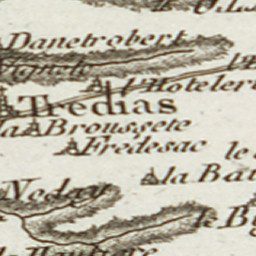 Danetrobert
l'Hoteleri
Tredias
la Broussete
Fredesac
le
la Bat
Neday
le By